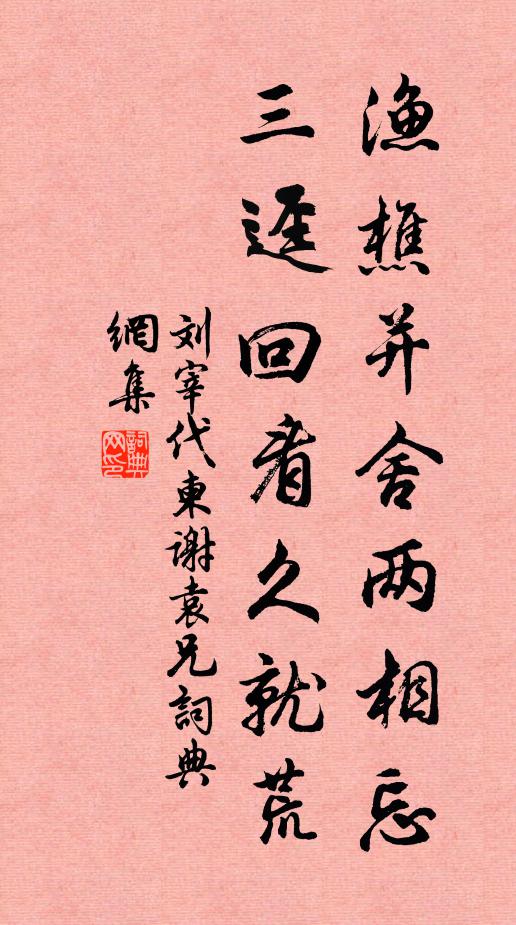 渔樵并舍两相忘
三逕回看久就荒
刘宰代東谢袁兄詞典
網集
詞典
网印